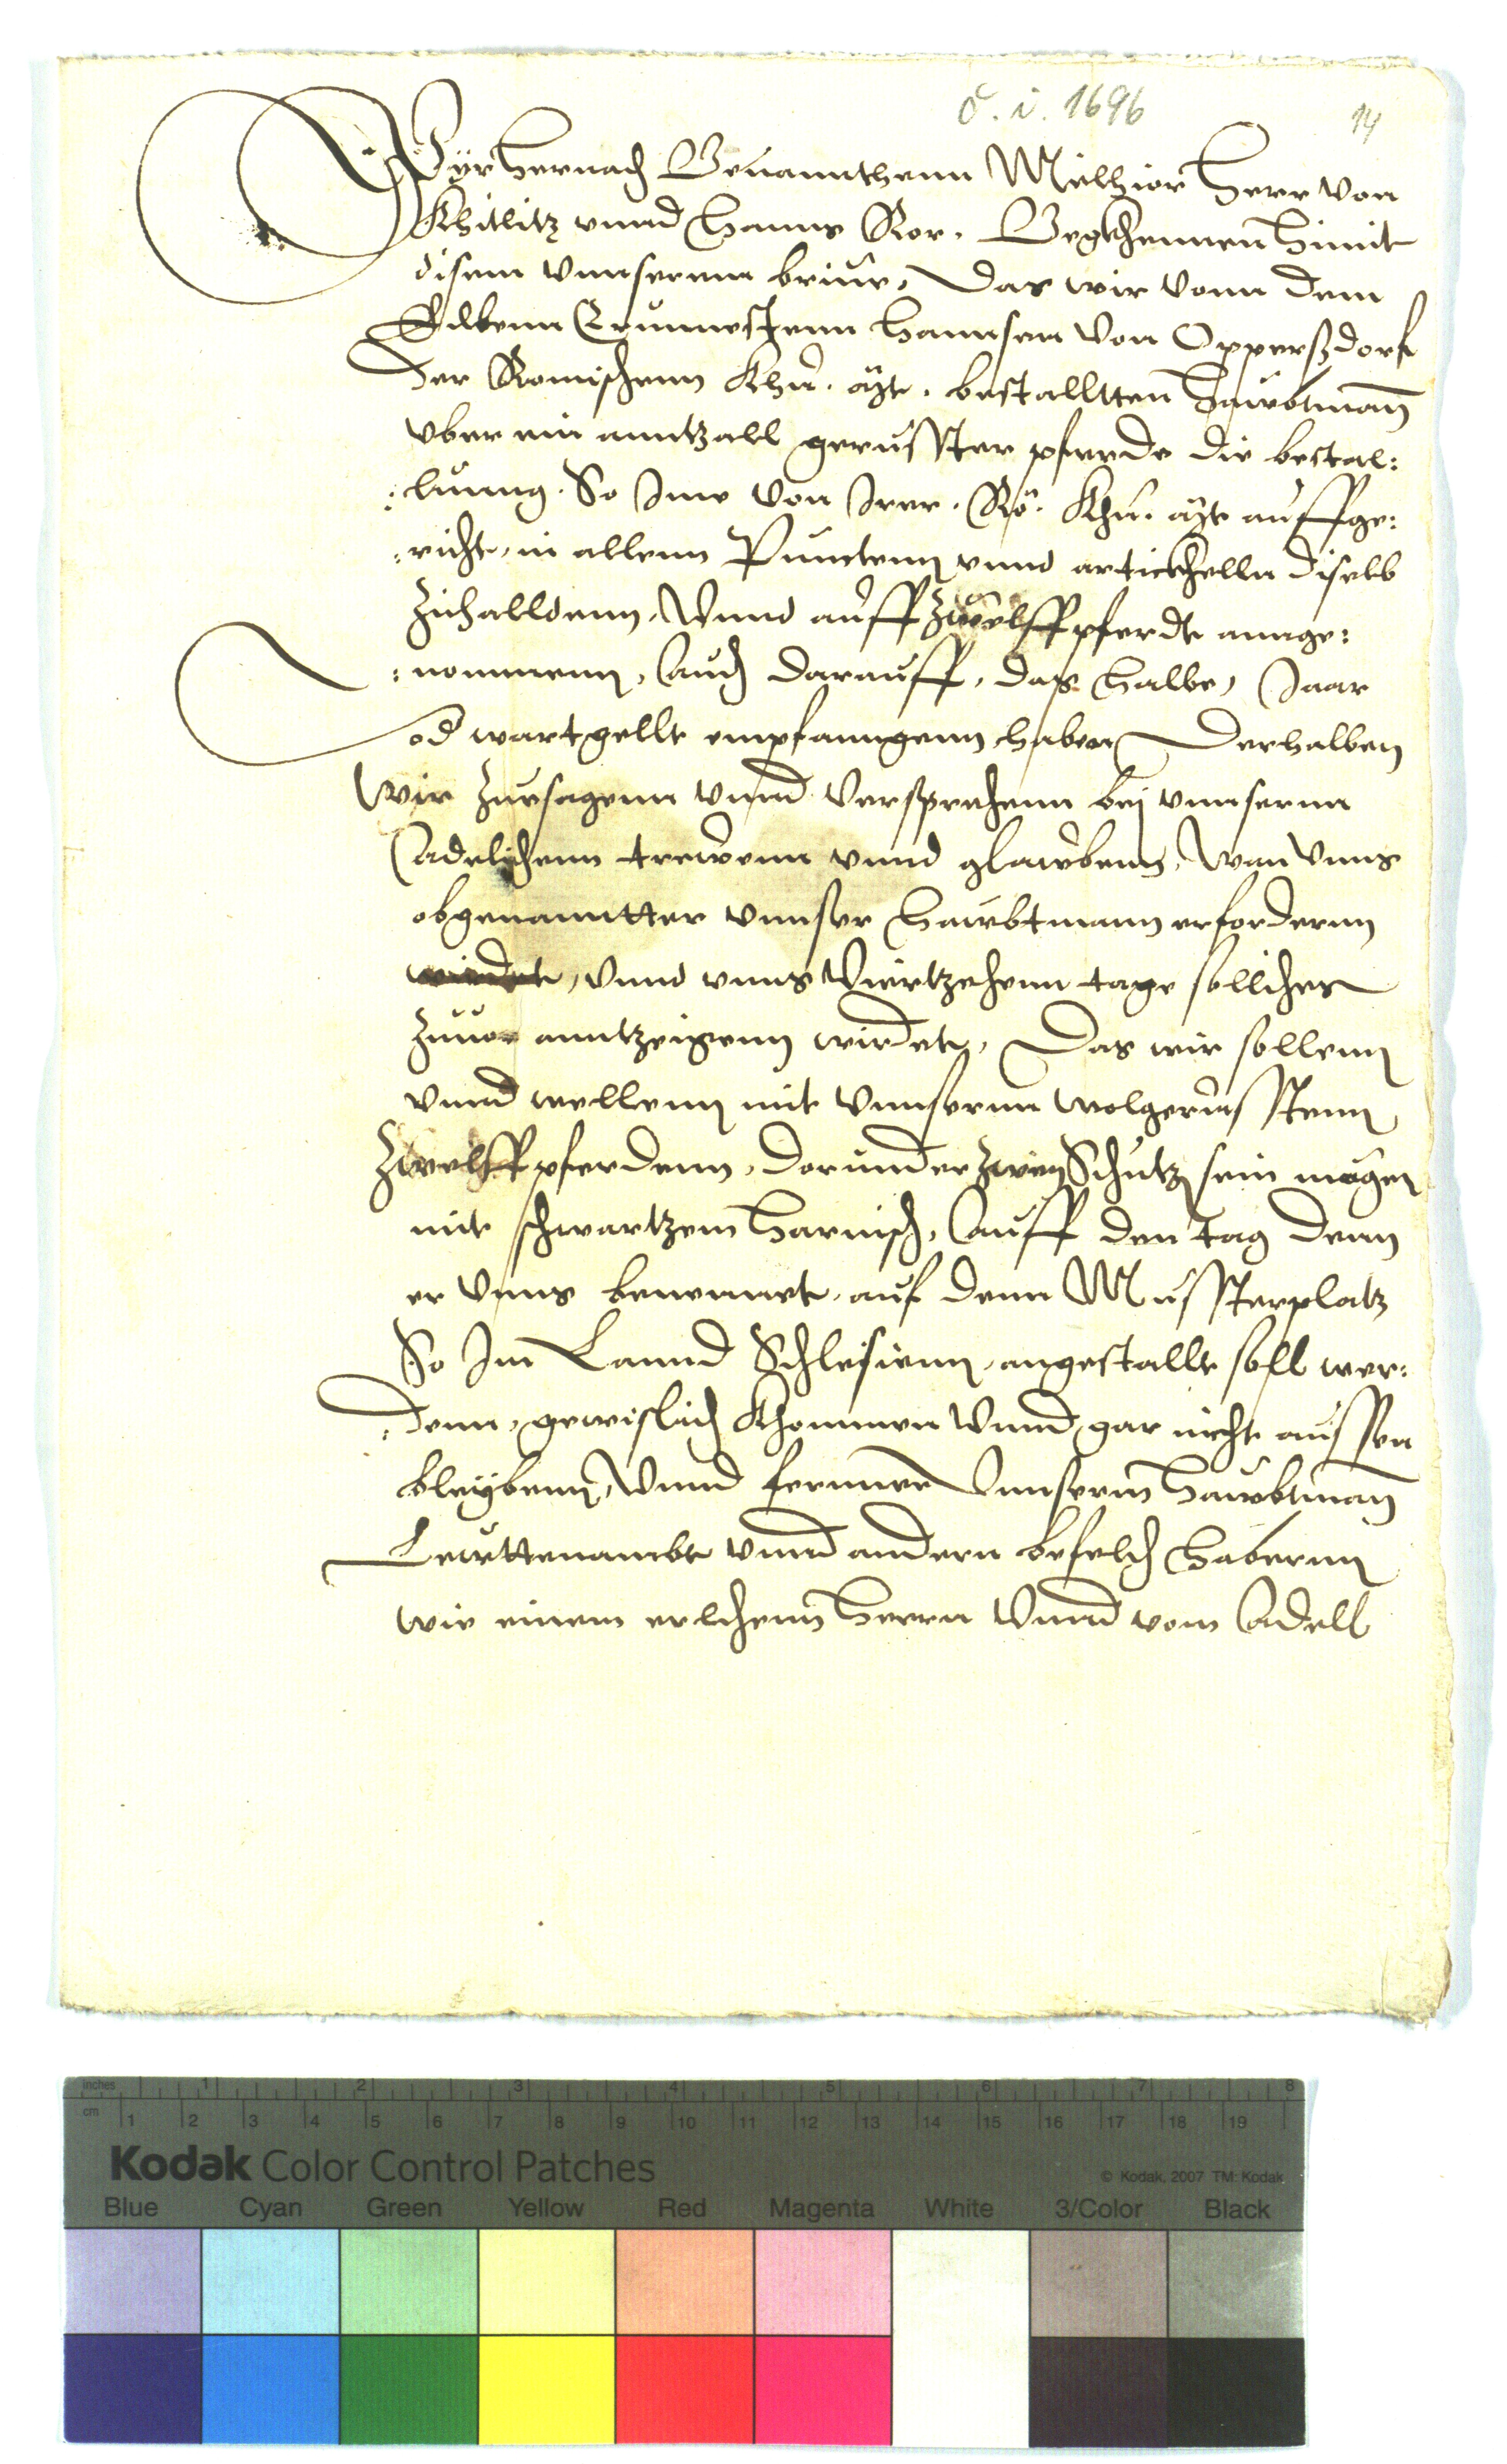 č. i. 1696
14
Wÿr hernach Benanntenn Melchior Herr von
Khitlitz vnnd Hanns Ror. Begkhennen himit
disem vnnserem brieue, Das wir vonn dem
Edlenn Ernnvesstenn Hannsen von Opperßdorf
der Romischenn Khü. Mt. bestalltten Haubtman
vber ein anntzall gerusster pferde die bestal:
:luung. So Ime von Irer. Rö. Khü. Mt auffge:
:richt, in allenn Puncten vnnd artickhelln diselb
Zuhalldenn, Vnnd auff Zwelff pferdt annge:
:nommenn, Auch darauff, das halbe, Jaar
od wartgellt empfanngenn haben Derhalben
Wir Zuesagenn vnnd Versprechenn bej vnnserm
Adelichenn trewenn vnnd glawbenn, Wan vnns
obgenanntter vnnser Haubtmann erfordernn
wirdet, vnnd vnns Viertzehenn tage sollches
Zuuor anntzeigenn wirdet, Das wir sollenn
vnnd wellenn mit vnnserm wolgerusstenn
Zwelff pferdenn, dorunder Zwen Schutzn sein mogen
mit schwartzem Harnisch, Auff den tag denn
er vnns benennet, auf denn Mussterplatz
So Im Lannd Schlesienn, angestallt soll wer:
:denn, gewislich Khommen vnnd gar nicht aussen
bleybenn, Vnnd ferner Vnnserm Haubtman
Leuttenambt vnnd andern befelch habernn
wie einem erlichenn Herrn vnnd vom Adell
Kodak Color Control Patches
© Kodak, 2007 TM: Kodak
inches 1 2 3 4 5 6 7 8
cm 1 2 3 4 5 6 7 8 9 10 11 12 13 14 15 16 17 18 19
Blue Cyan Green Yellow Red Magenta White 3/Color Black